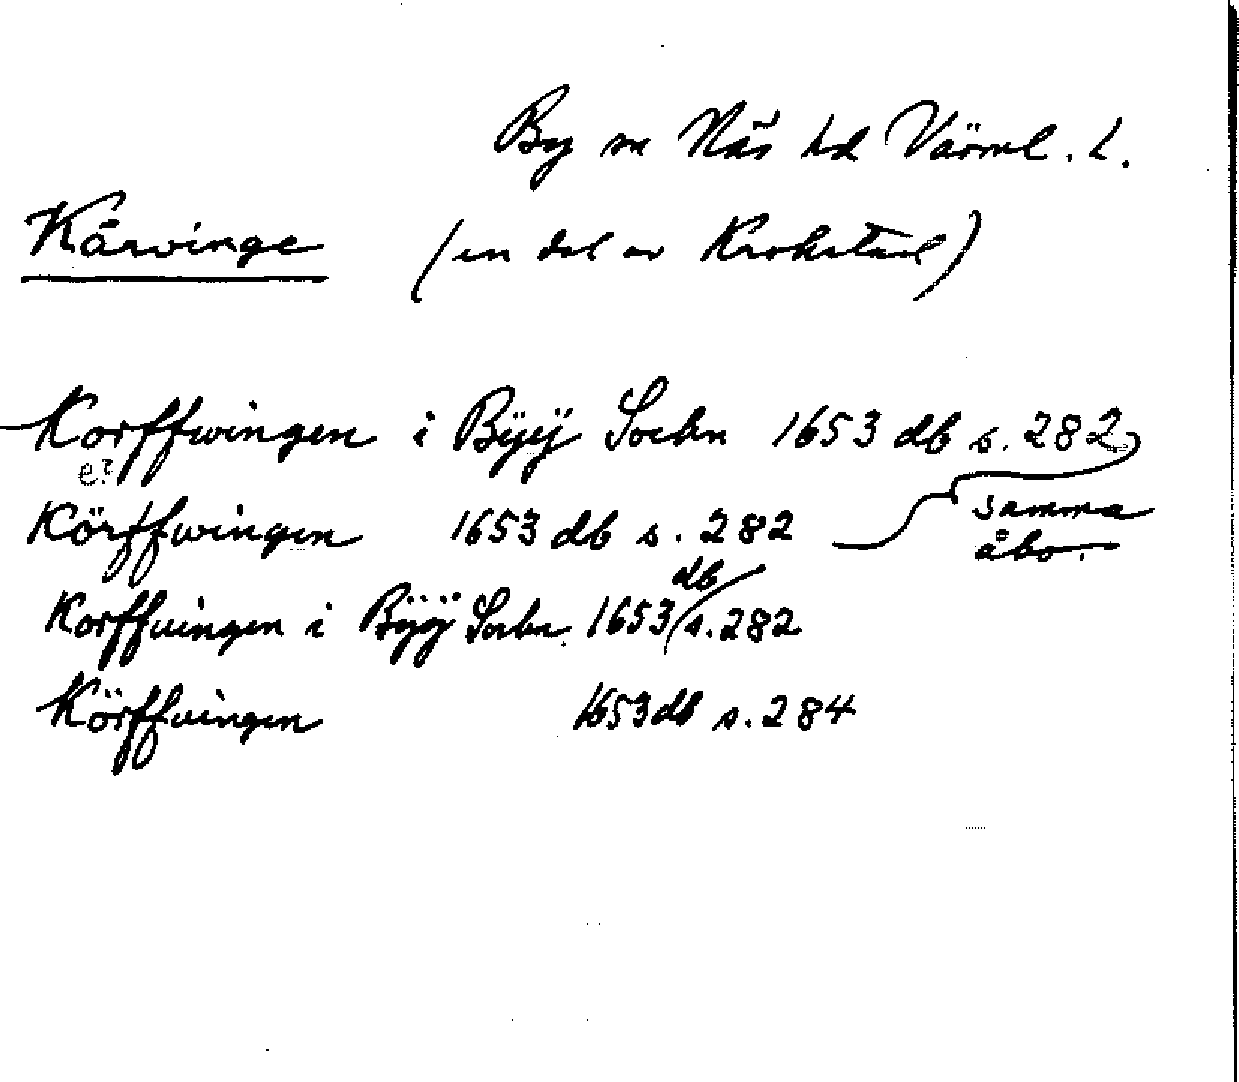 By sn Näs hd Värml. l.
Kårvinge (en del av Krokstad)
Korffwingen i Bÿÿ Sochn 1653 db s. 282
e?
Körffwingen 1653 db s. 282 samma åbo.
Korffvingen i Bÿÿ Sochn 1653 db s. 282
Körffvingen 1653 db s. 284